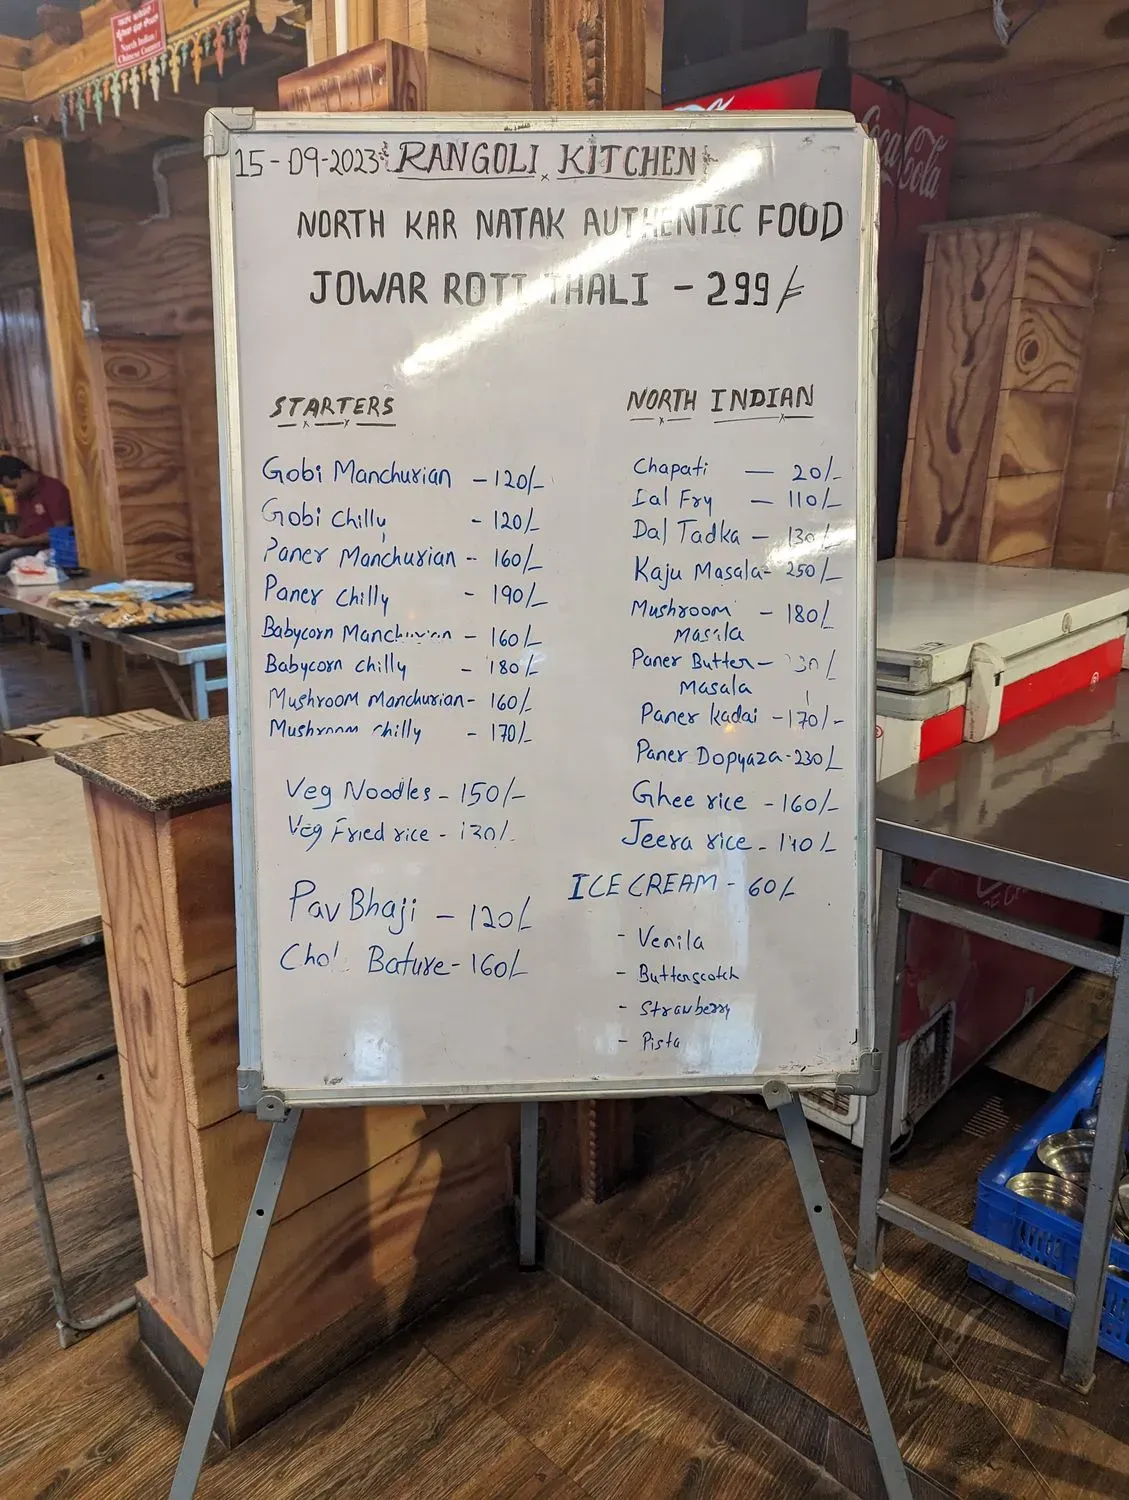 North Indian /
Chinese Counter
Coca Cola
15-09-2023 RANGOLI KITCHEN
NORTH KARNATAK AUTHENTIC FOOD
JOWAR ROTI THALI - 299/=
STARTERS
Gobi Manchurian - 120/-
Gobi Chilly - 120/-
Paner Manchurian - 160/-
Paner chilly - 190/-
Babycorn Manchurian - 160/-
Babycorn chilly - 180/-
Mushroom manchurian - 160/-
Mushroom chilly - 170/-
Veg Noodles - 150/-
Veg Fried rice - 130/-
Pav Bhaji - 120/-
Bature - 160/-
NORTH INDIAN
Chapati - 20/-
Fry - 110/-
Dal Tadka - 130/-
Kaju Masala - 250/-
Mushroom - 180/-
Masala
Paner Butter -
Masala
Paner kadai - 170/-
Paner Dopyaza - 230/-
Ghee rice - 160/-
Jeera rice -
ICE CREAM - 60/-
- Venila
- Butterscotch
- Strawberry
- Pista